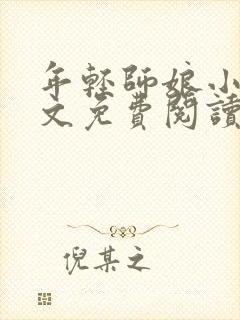 年輕師娘小
文免費閱讀
倪某之